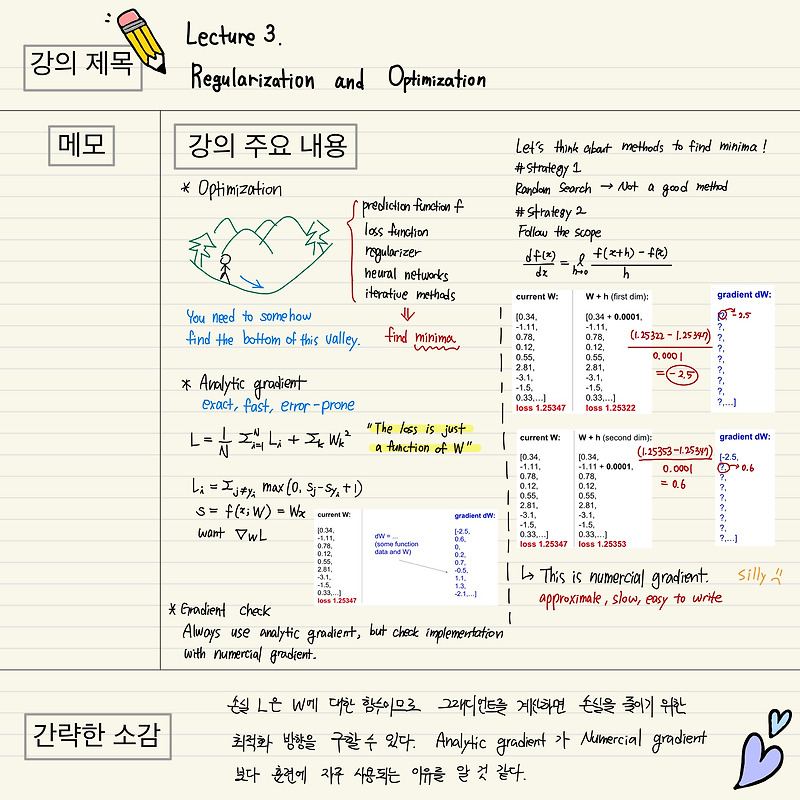 강의 제목
Lecture 3.
Regularization and Optimization
메모
강의 주요 내용
* Optimization
prediction function f
loss function
regularizer
neural networks
iterative methods
⇓
find minima
You need to somehow
find the bottom of this valley.
* Analytic gradient
exact, fast, error-prone
L = 1/N Σ_{i=1}^N L_i + Σ_k W_k^2
"The loss is just
a function of W"
L_i = Σ_{j≠y_i} max(0, s_j - s_{y_i} + 1)
s = f(x; W) = Wx
want ∇_W L
current W:
[0.34,
-1.11,
0.78,
0.12,
0.55,
2.81,
-3.1,
-1.5,
0.33,...]
loss 1.25347
dW = ...
(some function
data and W)
gradient dW:
[-2.5,
0.6,
0,
0.2,
0.7,
-0.5,
1.1,
1.3,
-2.1,...]
* Gradient check
Always use analytic gradient, but check implementation
with numercial gradient.
Let's think about methods to find minima!
# Strategy 1
Random Search → Not a good method
# Strategy 2
Follow the scope
df(x)/dx = ℓ_{h→0} f(x+h) - f(x) / h
current W:
[0.34,
-1.11,
0.78,
0.12,
0.55,
2.81,
-3.1,
-1.5,
0.33,...]
loss 1.25347
W + h (first dim):
[0.34 + 0.0001,
-1.11,
0.78,
0.12,
0.55,
2.81,
-3.1,
-1.5,
0.33,...]
loss 1.25322
(1.25322 - 1.25347)
0.0001
= -2.5
gradient dW:
[?, → -2.5
?,
?,
?,
?,
?,
?,
?,
?,...]
current W:
[0.34,
-1.11,
0.78,
0.12,
0.55,
2.81,
-3.1,
-1.5,
0.33,...]
loss 1.25347
W + h (second dim):
[0.34,
-1.11 + 0.0001,
0.78,
0.12,
0.55,
2.81,
-3.1,
-1.5,
0.33,...]
loss 1.25353
(1.25353-1.25347)
0.0001
= 0.6
gradient dW:
[-2.5,
?, → 0.6
?,
?,
?,
?,
?,
?,
?,...]
↳ This is numercial gradient.
silly
approximate, slow, easy to write
간략한 소감
손실 L은 W에 대한 함수이므로 그래디언트를 계산하면 손실을 줄이기 위한
최적화 방향을 구할 수 있다. Analytic gradient 가 Numercial gradient
보다 훈련에 자주 사용되는 이유를 알 것 같다.